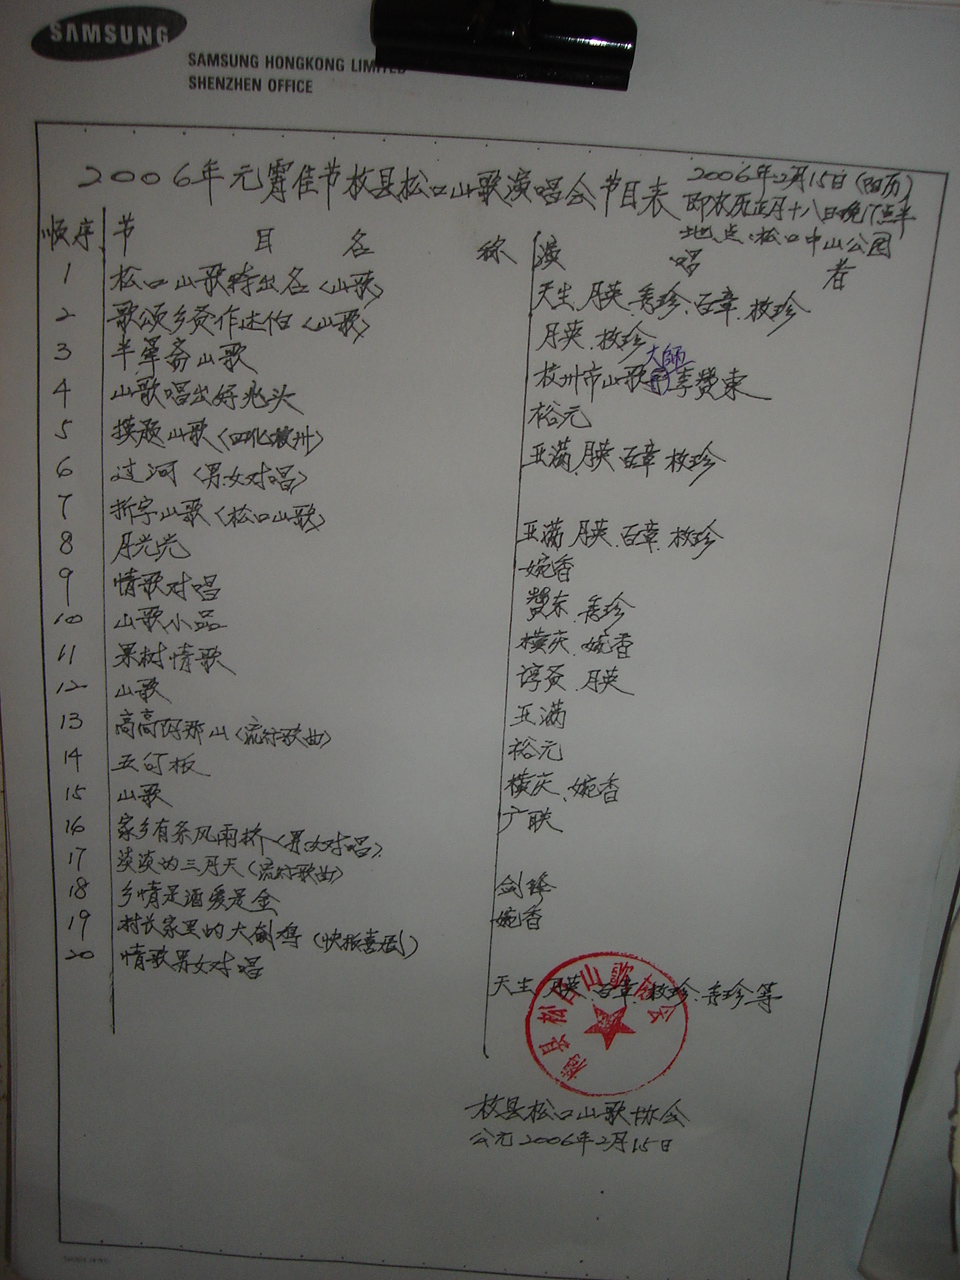 SAMSUNG
SAMSUNG HONGKONG LIMITED
SHENZHEN OFFICE
2006年元霄佳节梅县松口山歌演唱会节目表
2006年2月15日(阳历)
即农历正月十八日晚7点半
地点:松口中山公园
顺序 节目名称 演唱者
1 松口山歌特出名<山歌> 天生.月英.秀珍.百章.梅珍
2 歌颂乡贤作述伯<山歌> 月英.梅珍
3 半荤斋山歌 梅州市山歌大師李贊東
4 山歌唱出好兆头 裕元
5 摸题山歌<四化梅州> 亚满.月英.百章.梅珍
6 过河<男女对唱>
7 拆字山歌<松口山歌> 亚满.月英.百章.梅珍
8 月光光 婉香
9 情歌对唱 贊东.秀珍
10 山歌小品 横庆.婉香
11 果树情歌 谆贤.月英
12 山歌 亚满
13 高高的那山<流行歌曲> 裕元
14 五句板 横庆.婉香
15 山歌 广联
16 家乡有条风雨桥<男女对唱>
17 淡淡的三月天<流行歌曲> 剑锋
18 乡情是酒爱是金 婉香
19 村长家里的大劁鸡(快板喜剧)
20 情歌男女对唱 天生.月英.百章.梅珍.秀珍等
梅县松口山歌协会
梅县松口山歌协会
公元2006年2月15日